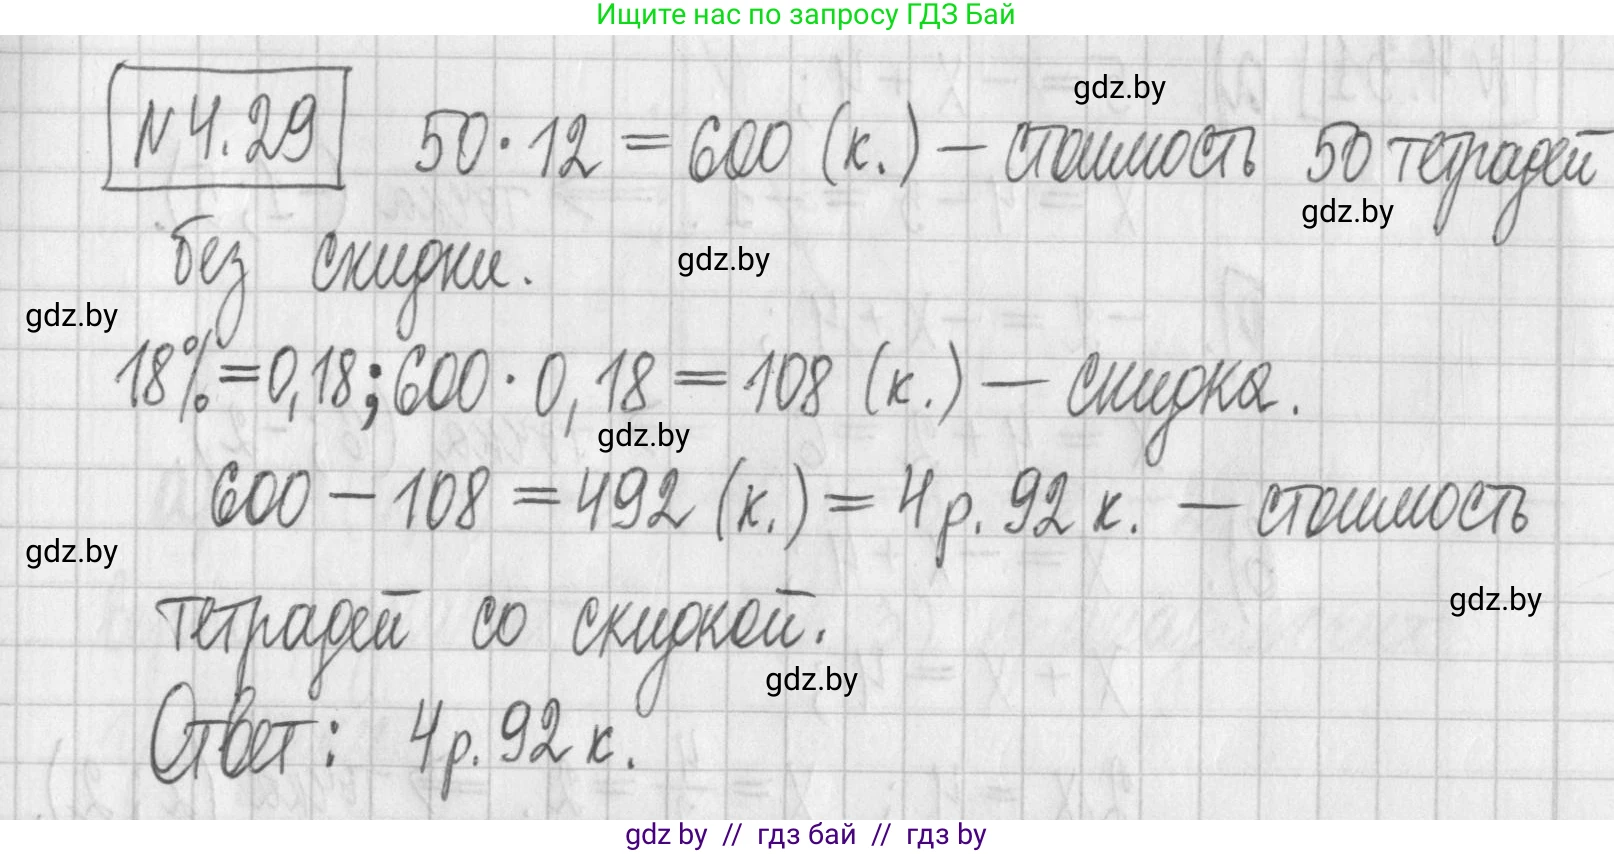 Ищите нас по запросу ГДЗ Бай
gdz.by
№4.29 50·12=600 (к.) – стоимость 50 тетрадей
gdz.by
без скидки.
gdz.by
gdz.by
18%=0,18; 600·0,18=108 (к.) – скидка.
gdz.by
600–108=492 (к.)=4р. 92 к. – стоимость
gdz.by
gdz.by
тетрадей со скидкой.
gdz.by
Ответ: 4р. 92 к.
gdz by // гдз бай // гдз by